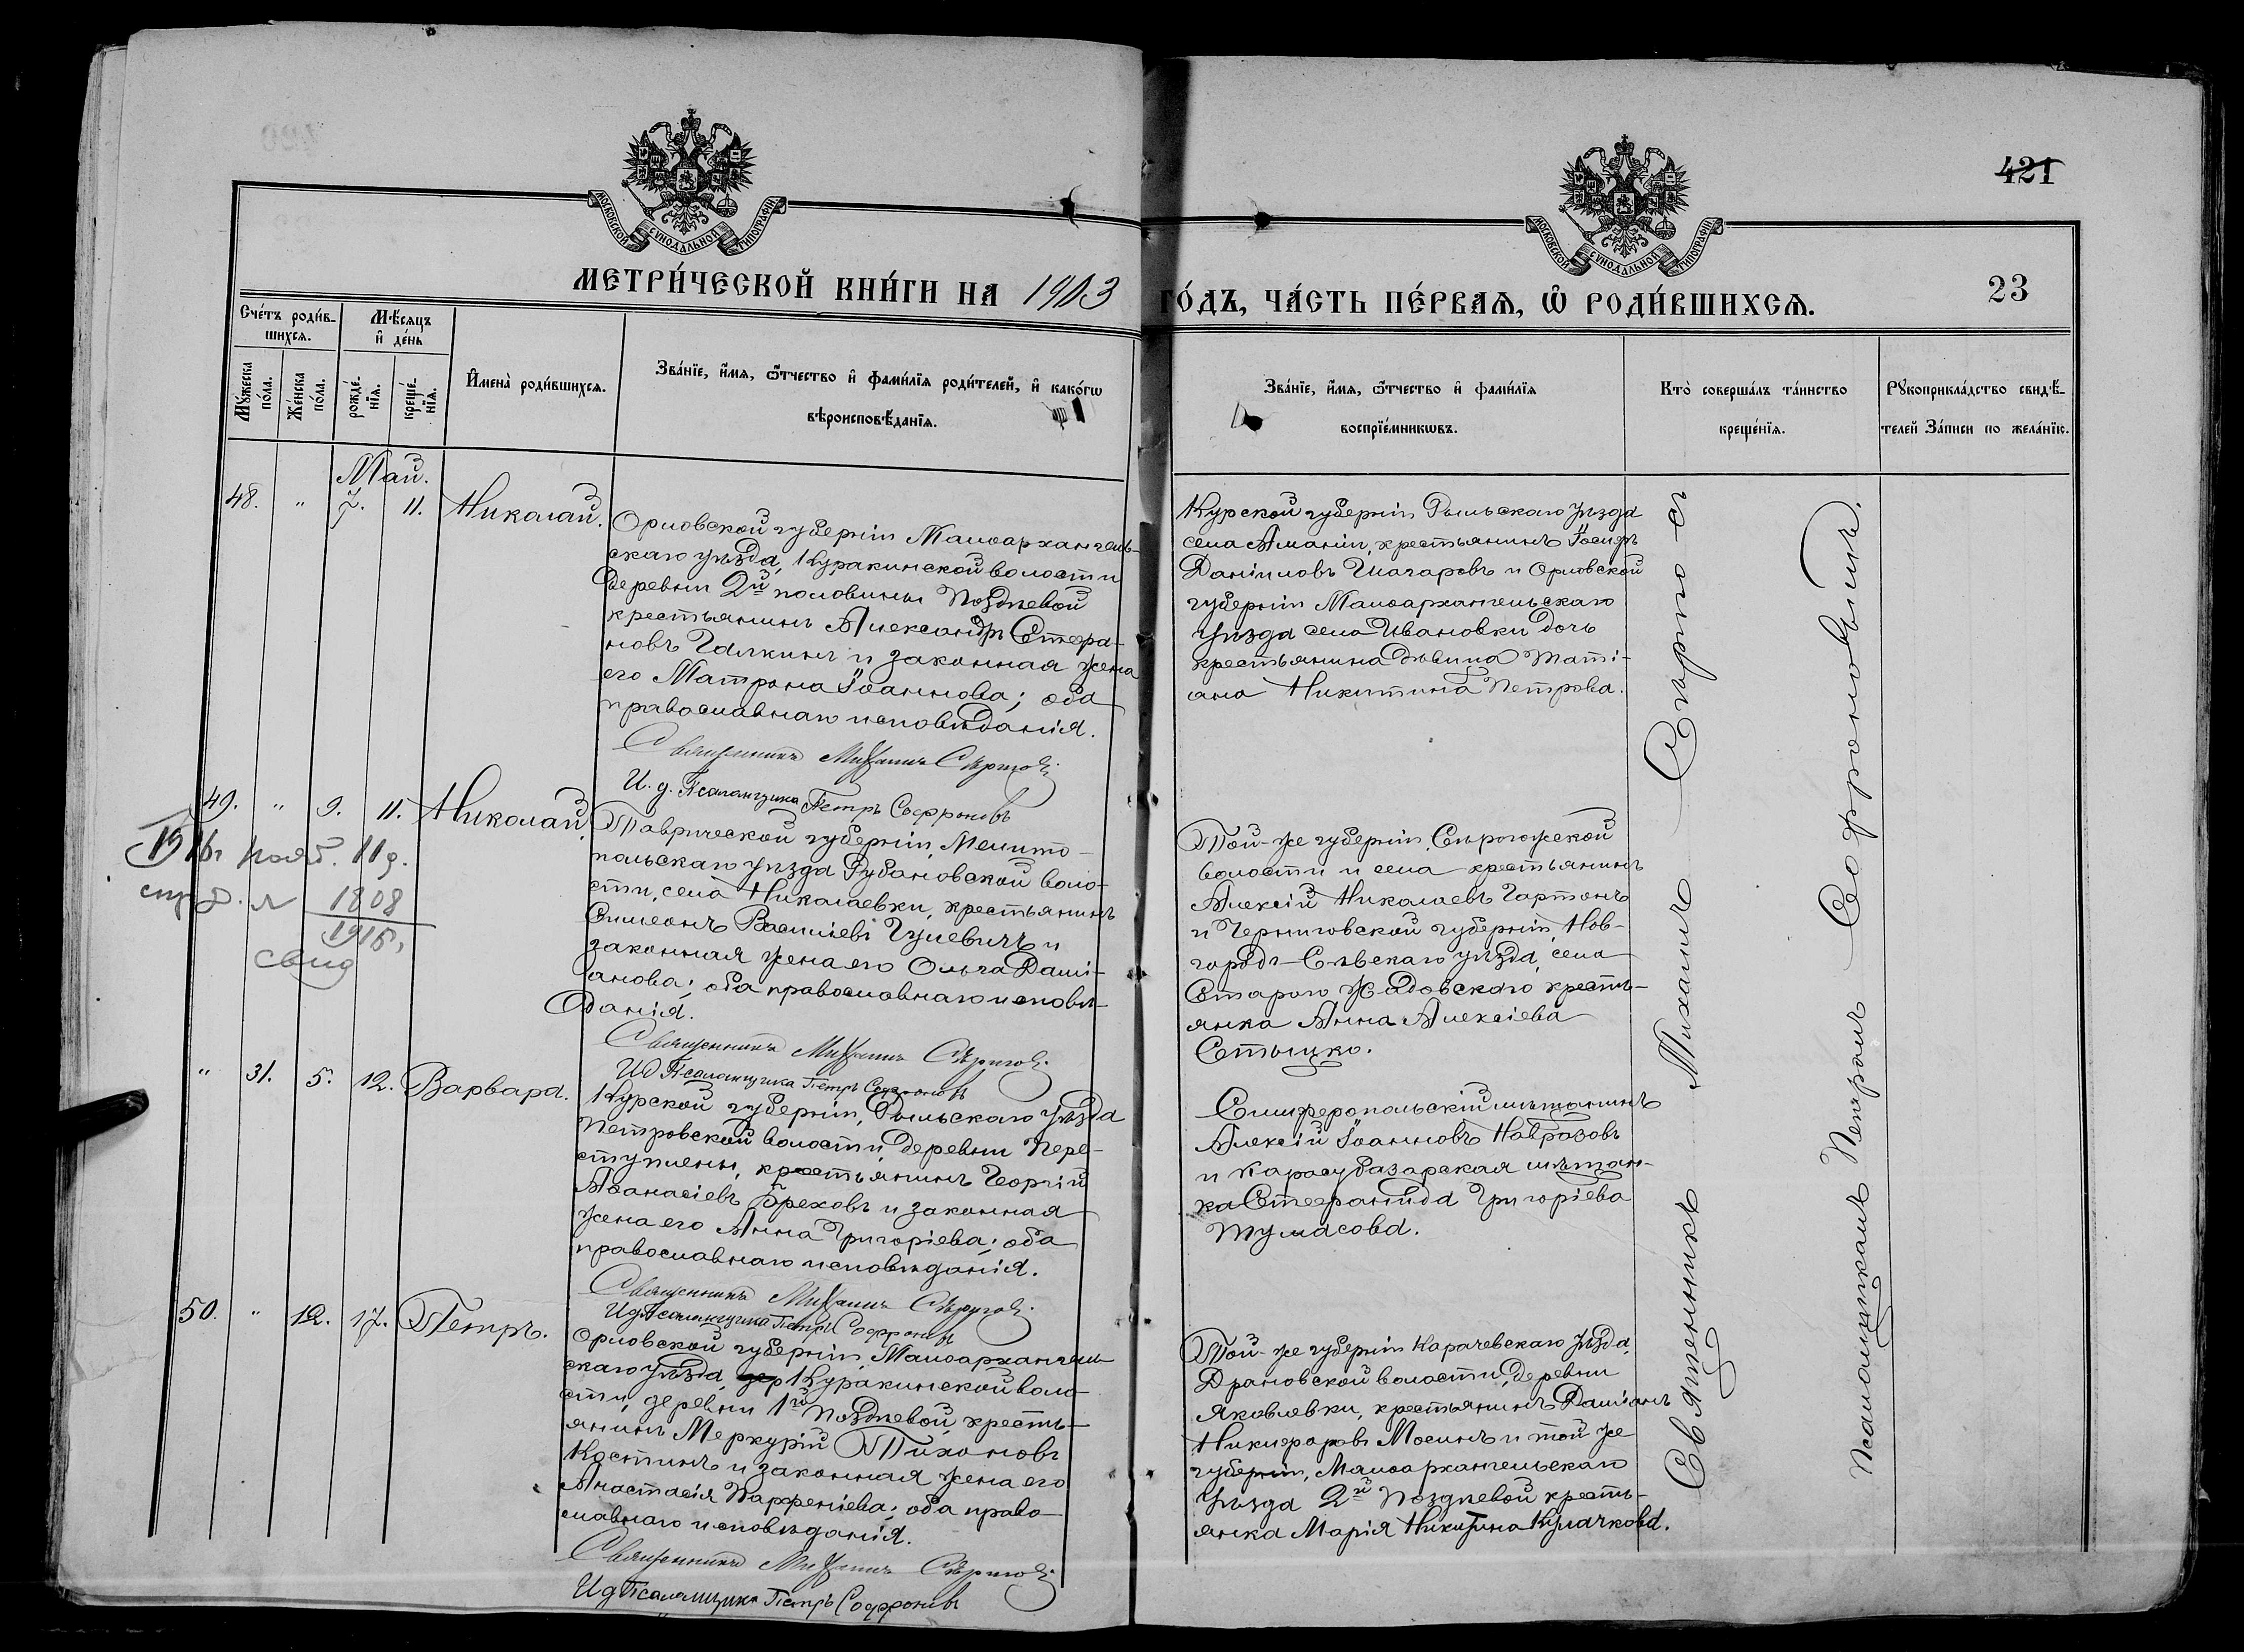 421
МОСКОВСКОЙ СѴНОДАЛЬНОЙ ТИПОГРАФІИ
МОСКОВСКОЙ СѴНОДАЛЬНОЙ ТИПОГРАФІИ
МЕТРИ́ЧЕСКОЙ КНИ́ГИ НА 1903
ГО́ДЪ, ЧА́СТЬ ПЕ́РВАѦ, Ѡ҆ РОДИ́ВШИХСѦ.
23
Сче́тъ роди́в-
шихсѧ.
Мꙋ́жеска
по́ла.
Же́нска
по́ла.
Мѣ́сѧцъ
и҆ де́нь
рожде́-
нїѧ.
креще́-
нїѧ.
И҆мена̀ роди́вшихсѧ.
Зва́нїе, и҆́мѧ, ѻ҆́тчество и҆ фами́лїѧ роди́телей, и҆ како́гѡ
вѣроисповѣ́данїѧ.
Зва́нїе, и҆́мѧ, ѻ҆́тчество и҆ фами́лїѧ
воспрїе́мникѡвъ.
Кто̀ соверша́лъ та́инство
креще́нїѧ.
Рꙋкоприкла́дство свидѣ́-
телей За́писи по жела́нїю.
Май.
48. " 7. 11. Николай.
Орловской губерніи Малоархангель-
скаго уѣзда, Куракинской волости
деревни 2й половины Поздневой
крестьянинъ Александръ Стефа-
новъ Галкинъ и законная жена
его Матрона Іоаннова; оба
православнаго исповѣданія.
Священникъ Михаилъ Сѣрпов
И. д. Псаломщика Петръ Софроновъ
Курской губерніи Рыльскаго уѣзда
села Аманіи, крестьянинъ Іосифъ
Даніиловъ Шагаровъ и Орловской
губерніи Малоархангельскаго
уѣзда села Ивановки дочь
крестьянина дѣвица Таті-
ана Никитина Петрова.
49. " 9. 11. Николай.
1916г нояб. 11 д.
1808
1916г
свид
Таврической губерніи, Мелито-
польскаго уѣзда Рубановской воло-
сти, села Николаевки, крестьянинъ
Симеонъ Василіевъ Гулевичъ и
законная жена его Ольга Дамі-
анова; оба православнаго исповѣ-
данія.
Священникъ Михаилъ
ИД Псаломщика Петръ Софроновъ
Той-же губерніи, Сѣрогозской
волости и села крестьянинъ
Алексій Николаевъ Гартонъ
и Черниговской губерніи, Нов-
городъ-Сѣвскаго уѣзда, села
Стараго Жадовскаго кресть-
янка Анна Алексіева
" 31. 5. 12. Варвара.
Курской губерніи, Рыльскаго уѣзда
Петровской волости, деревни Пере-
ступлены, крестьянинъ Георгій
Аѳанасіевъ Бреховъ и законная
жена его Анна Григоріева; оба
православнаго исповѣданія.
Священникъ Михаилъ
ИдПсаломщика Петръ Софроновъ
Симферопольскій мѣщанинъ
Алексій Іоанновъ Навразовъ
и Карасубазарская мѣщан-
ка Стефанида Григоріева
Тумасова.
50. " 12. 17. Петръ.
Орловской губерніи, Малоархангель-
скаго уѣзда, дер Куракинской воло-
сти, деревни 1й Поздневой, кресть-
янинъ Меркурій Тихоновъ
Костинъ и законная жена его
Анастасія Парѳеніева; оба право-
славнаго исповѣданія.
Священникъ Михаилъ
ИдПсаломщика Петръ Софроновъ
Той-же губерніи Карачевскаго уѣзда,
Драновской волости, деревни
Яковлевки, крестьянинъ Даміанъ
Никифоровъ Мосинъ и той же
губерніи, Малоархангельскаго
уѣзда 2й Поздневой кресть-
янка Марія Никитина Кулачкова.
Священникъ Михаилъ с
Псаломщикомъ Петромъ Софроновымъ.